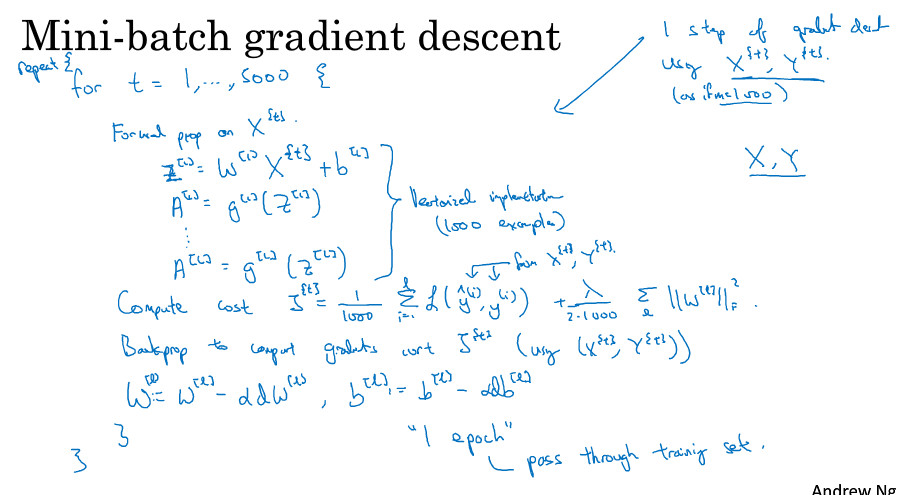 Mini-batch gradient descent
repeat {
for t = 1,...,5000 {
1 step of gradient descent
using X^{t}, Y^{t}.
(as if m=1000)
X, Y
Forward prop on X^{t}.
Z^[1] = W^[1] X^{t} + b^[1]
A^[1] = g^[1](Z^[1])
⋮
A^[L] = g^[L](Z^[L])
Vectorized implementation
(1000 examples)
from X^{t}, Y^{t}.
Compute cost J^{t} = 1/1000 Σ_{i=1}^{l} L(ŷ^(i), y^(i)) + λ/(2·1000) Σ_l ||W^[l]||_F^2.
Backprop to compute gradients wrt J^{t} (using (X^{t}, Y^{t}))
W^[l] := W^[l] - αdW^[l], b^[l] := b^[l] - αdb^[l]
}
}
"1 epoch"
pass through training set.
Andrew Ng